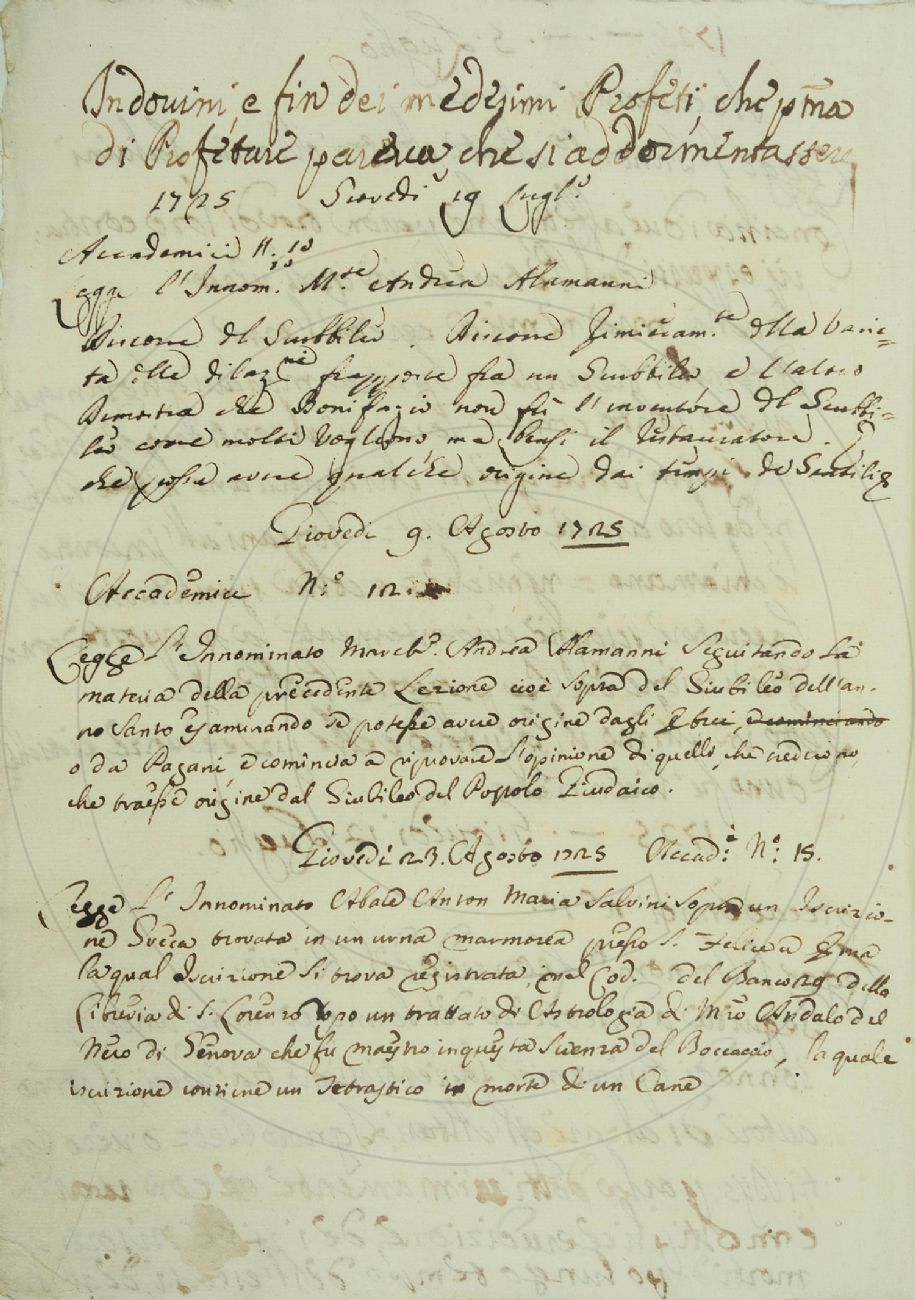 Indovini, e fin dei medesimi Profeti, che pma
di Profetare pareva, che si addormentasser
1725 Giovedi 19 Lugl.o
Accademici N. 10
Legge l'Innom.to M.se Andrea Alamanni
Discorre del Giubbileo. Discorre della varie=
ta delle frapposte fra un Giubbileo e l'altro
Dimostra che Bonifazio non fù l'inventore del Giubbi=
leo come molti vogliono ma bensi il restauratore.
che possa avere qualche origine dai tempi de Gentili
Giovedi 9. Agosto 1725
Accademici N:o 12
Legge L'Innominato March.e Andrea Alamanni Seguitando la
materia della precedente Lezione cioè sopra del Giubileo dell'an-
no Santo esaminando se potesse avere origine dagli Ebrei, e cominciando
o da Pagani, e comincia a riprovare l'opinione di quelli, che credeono,
che traesse origine dal Giubileo del Popolo Giudaico.
Giovedi 23. Agosto 1725 Accad:i N:o 15.
Legge L'Innominato Abate Anton Maria Salvini sopra un Iscrizio-
ne Greca trovata in un urna marmorea presso S. Felice a Ema
la qual Iscrizione si trova registrata, nel Cod. del Banco 29 della
Libreria di S. Lorenzo dopo un trattato di Astrologia di Mro Andalo del
Nero di Genova che fu maestro in questa scienza del Boccaccio, la quale
iscrizione contiene un Tetrastico in morte di un Cane